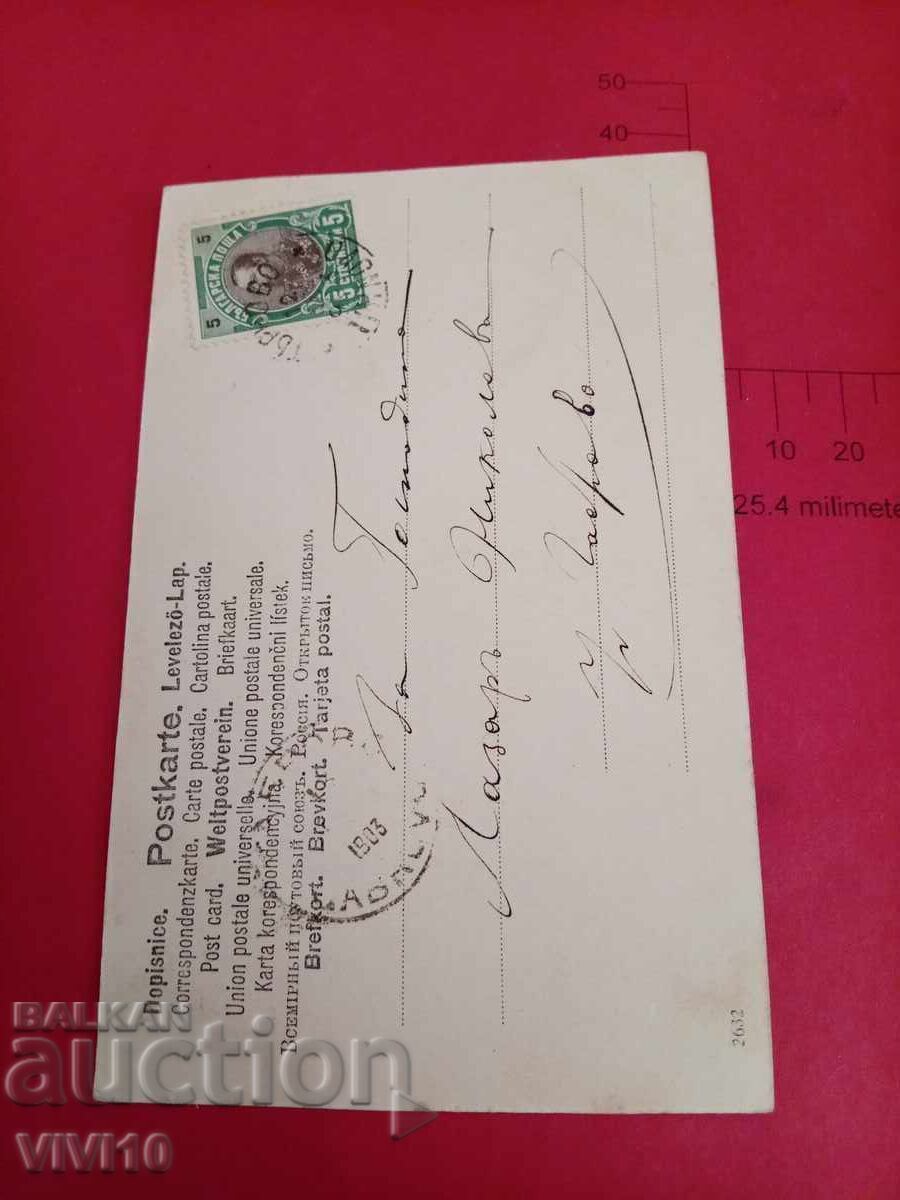 Dopisnice. Postkarte. Levelező-Lap.
Correspondenzkarte. Carte postale. Cartolina postale.
Post card. Weltpostverein. Briefkaart.
Union postale universelle. Unione postale universale.
Karta korespondencyjna. Korespondenční lístek.
Всемірный почтовый союзъ. Россія. Открытое письмо.
Brefkort. Brevkort. Tarjeta postal.
5 5
БЪЛГАРСКА ПОЩА
5 СТОТИНКИ 5
ТЪРНОВО
1903
Господино
Лазаръ Николовъ
2632
50
40
10 20
25.4 milimete
BALKAN
auction
VIVI10